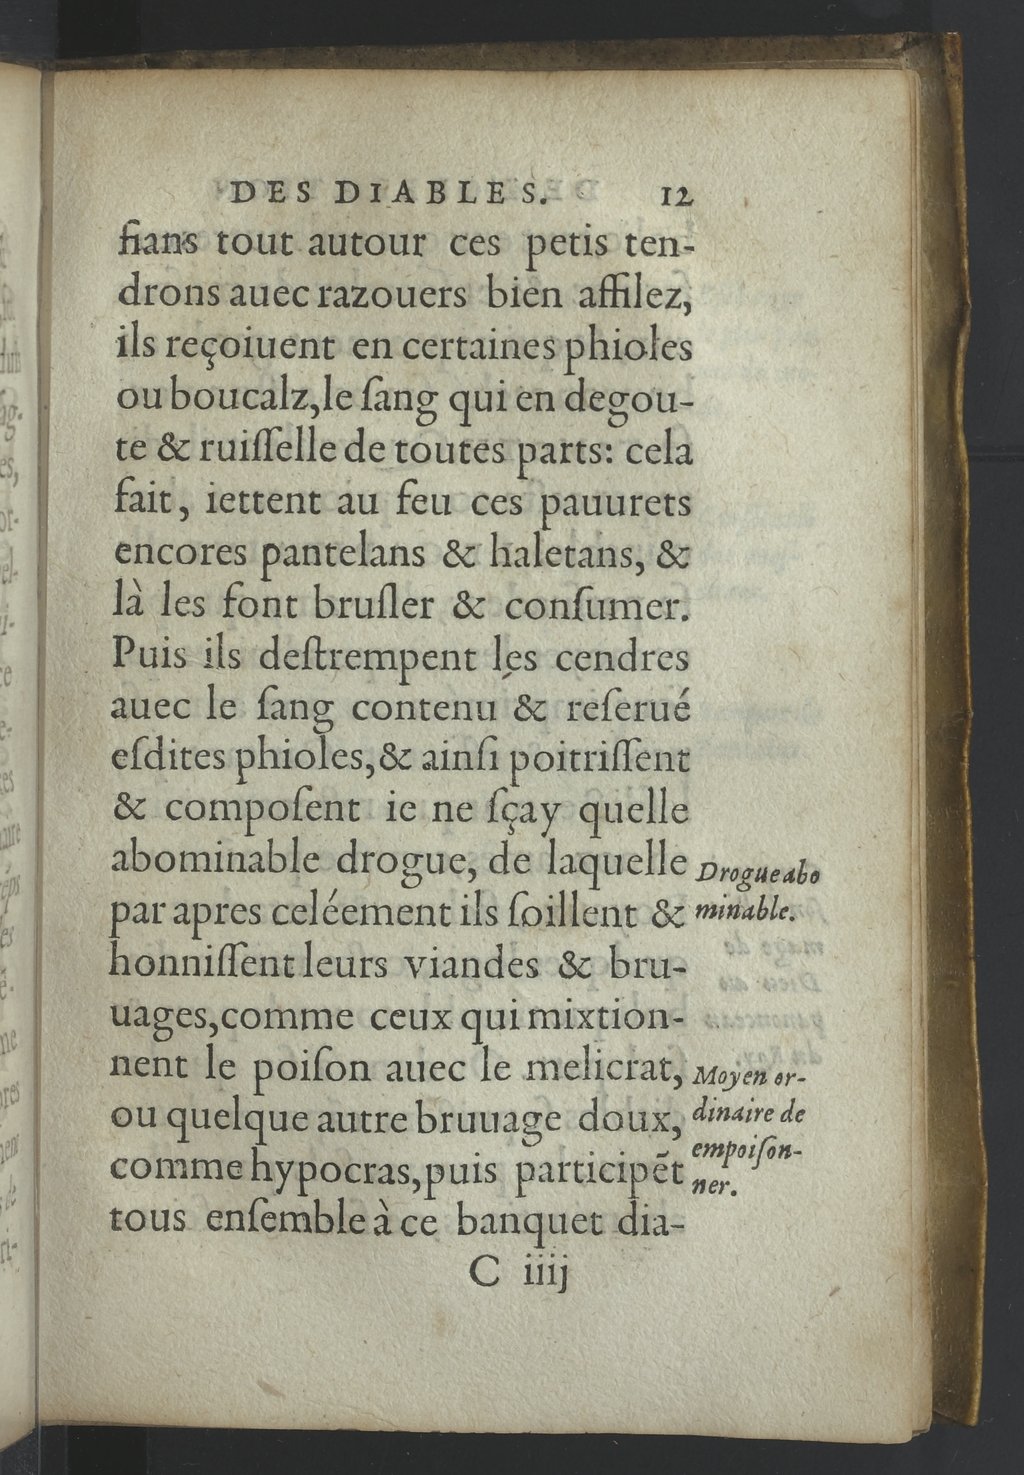 DES DIABLES. 12
fians tout autour ces petis ten-
drons auec razouers bien affilez,
ils reçoiuent en certaines phioles
ou boucalz,le ſang qui en degou-
te & ruiſſelle de toutes parts: cela
fait, iettent au feu ces pauurets
encores pantelans & haletans, &
là les font bruſler & conſumer.
Puis ils deſtrempent les cendres
auec le ſang contenu & reſerué
eſdites phioles,& ainſi poitriſſent
& compoſent ie ne ſçay quelle
abominable drogue, de laquelle
Drogue abo
par apres celéement ils ſoillent &
minable.
honniſſent leurs viandes & bru-
uages,comme ceux qui mixtion-
nent le poiſon auec le melicrat,
Moyen or-
ou quelque autre bruuage doux,
dinaire de
empoiſon-
comme hypocras,puis participẽt
ner.
tous enſemble à ce banquet dia-
C iiij